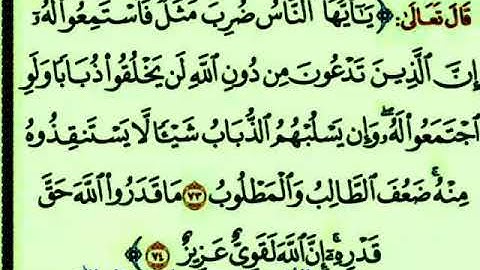 قال تعالى: ﴿ يَٰٓأَيُّهَا ٱلنَّاسُ ضُرِبَ مَثَلٞ فَٱسۡتَمِعُواْ لَهُۥٓ
إِنَّ ٱلَّذِينَ تَدۡعُونَ مِن دُونِ ٱللَّهِ لَن يَخۡلُقُواْ ذُبَابٗا وَلَوِ
ٱجۡتَمَعُواْ لَهُۥۖ وَإِن يَسۡلُبۡهُمُ ٱلذُّبَابُ شَيۡـٔٗا لَّا يَسۡتَنقِذُوهُ
مِنۡهُۚ ضَعُفَ ٱلطَّالِبُ وَٱلۡمَطۡلُوبُ ٧٣ مَا قَدَرُواْ ٱللَّهَ حَقَّ
قَدۡرِهِۦٓۚ إِنَّ ٱللَّهَ لَقَوِيٌّ عَزِيزٌ ٧٤ ﴾